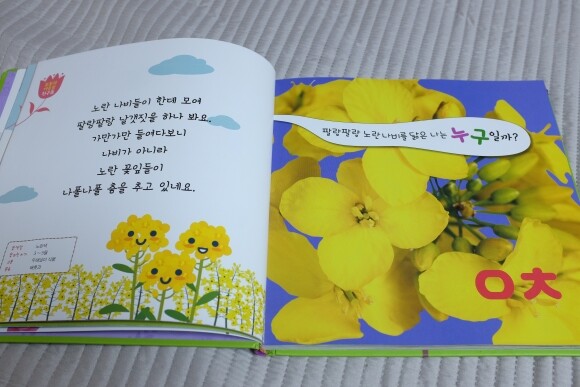 노란 나비들이 한데 모여
팔랑팔랑 날갯짓을 하나 봐요.
가만가만 들여다보니
나비가 아니라
노란 꽃잎들이
나풀나풀 춤을 추고 있네요.
팔랑팔랑 노란 나비를 닮은 나는 누구일까?
ㅇㅊ